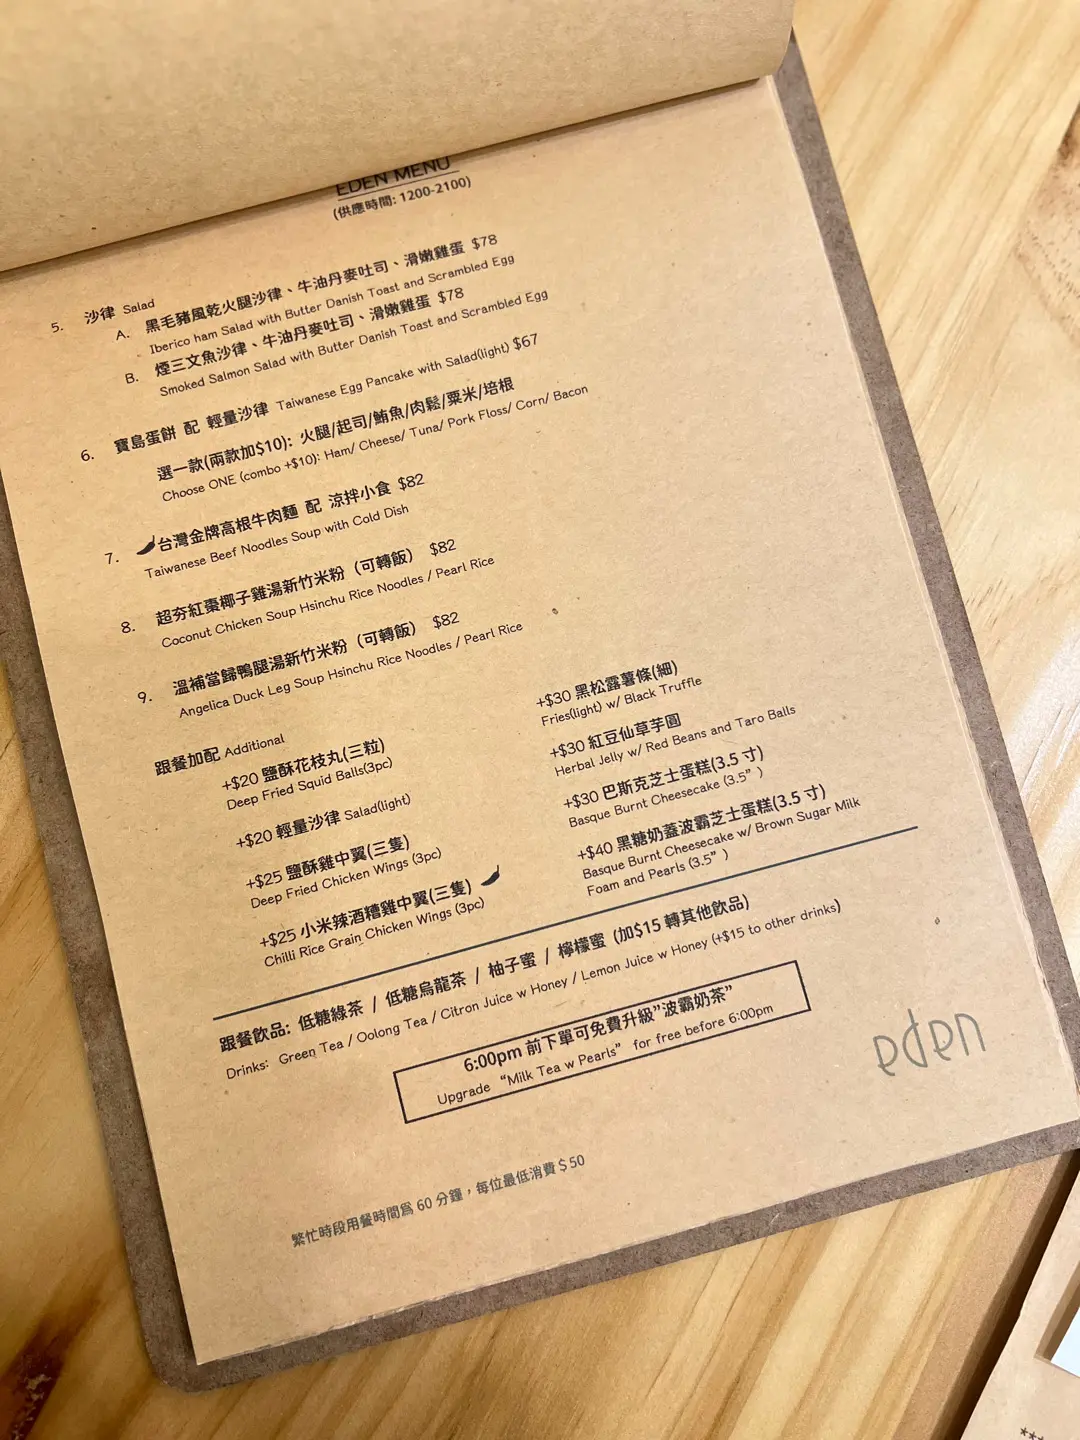 EDEN MENU
(供應時間: 1200-2100)
5. 沙律 Salad
A. 黑毛豬風乾火腿沙律、牛油丹麥吐司、滑嫩雞蛋 $78
Iberico ham Salad with Butter Danish Toast and Scrambled Egg
B. 煙三文魚沙律、牛油丹麥吐司、滑嫩雞蛋 $78
Smoked Salmon Salad with Butter Danish Toast and Scrambled Egg
6. 寶島蛋餅 配 輕量沙律 Taiwanese Egg Pancake with Salad(light) $67
選一款(兩款加$10): 火腿/起司/鮪魚/肉鬆/粟米/培根
Choose ONE (combo +$10): Ham/ Cheese/ Tuna/ Pork Floss/ Corn/ Bacon
7. 台灣金牌高根牛肉麵 配 涼拌小食 $82
Taiwanese Beef Noodles Soup with Cold Dish
8. 超夯紅棗椰子雞湯新竹米粉（可轉飯） $82
Coconut Chicken Soup Hsinchu Rice Noodles / Pearl Rice
9. 溫補當歸鴨腿湯新竹米粉（可轉飯） $82
Angelica Duck Leg Soup Hsinchu Rice Noodles / Pearl Rice
跟餐加配 Additional
+$20 鹽酥花枝丸(三粒)
Deep Fried Squid Balls(3pc)
+$20 輕量沙律 Salad(light)
+$25 鹽酥雞中翼(三隻)
Deep Fried Chicken Wings (3pc)
+$25 小米辣酒糟雞中翼(三隻)
Chilli Rice Grain Chicken Wings (3pc)
+$30 黑松露薯條(細)
Fries(light) w/ Black Truffle
+$30 紅豆仙草芋圓
Herbal Jelly w/ Red Beans and Taro Balls
+$30 巴斯克芝士蛋糕(3.5 寸)
Basque Burnt Cheesecake (3.5” )
+$40 黑糖奶蓋波霸芝士蛋糕(3.5 寸)
Basque Burnt Cheesecake w/ Brown Sugar Milk
Foam and Pearls (3.5” )
跟餐飲品: 低糖綠茶 / 低糖烏龍茶 / 柚子蜜 / 檸檬蜜 (加$15 轉其他飲品)
Drinks: Green Tea / Oolong Tea / Citron Juice w Honey / Lemon Juice w Honey (+$15 to other drinks)
6:00pm 前下單可免費升級”波霸奶茶”
Upgrade “Milk Tea w Pearls” for free before 6:00pm
eden
繁忙時段用餐時間為 60 分鐘，每位最低消費 $ 50
***